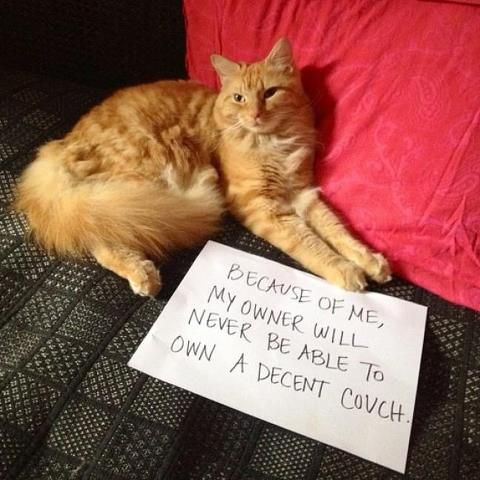 BECAUSE OF ME,
MY OWNER WILL
NEVER BE ABLE TO
OWN A DECENT COUCH.